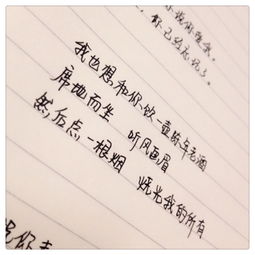 你已经忘记了。
我也想和你饮一壶陈年老酒
席地而坐 听风画眉
然后点一根烟 烧光我的所有